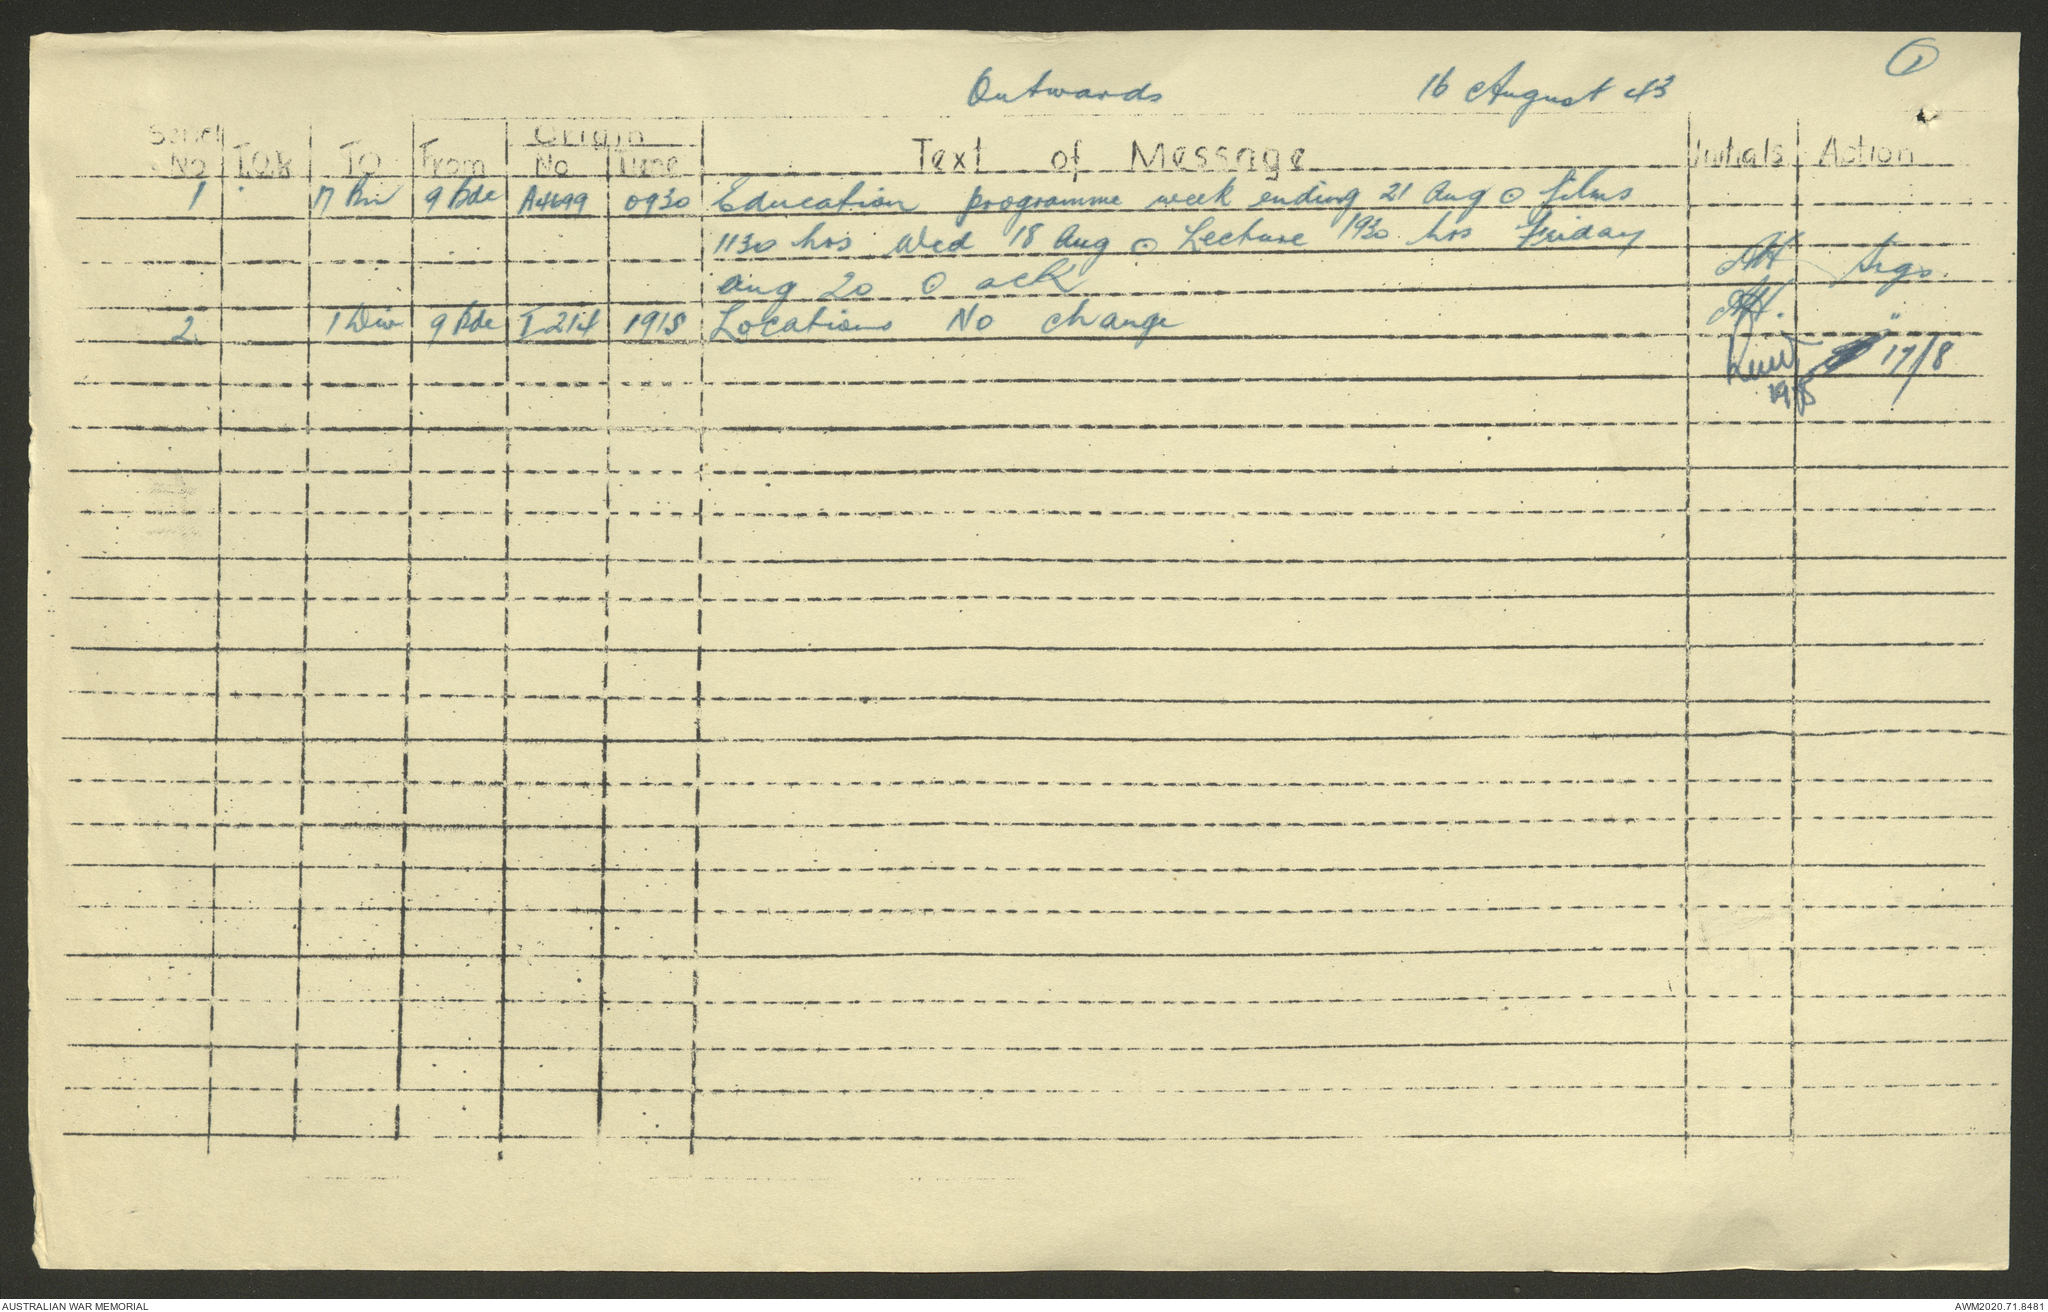 1
Outwards 16 August 43
Serial No T.O.R To From Origin No Time Text of Message Initials Action
1 9 Bde A4699 0930 Education programme week ending 21 Aug ⊙ films
1130 hrs Wed 18 Aug ⊙ Lecture 1930 hrs Friday
Aug 20 ⊙ ack AH Sigs
2 1 Div 9 Bde I 214 1915 Locations No change AH. "
17/8
AUSTRALIAN WAR MEMORIAL
AWM2020.71.8481